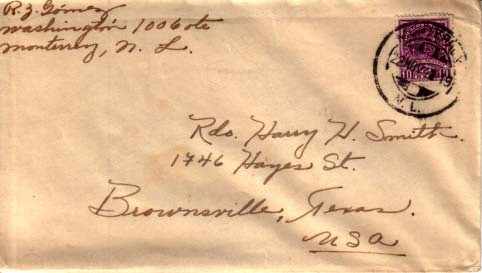 R. Z. Gómez
Washington 1006 ote
Monterrey, N. L.
10
19
N. L.
Rdo. Harry H. Smith.
1746 Hayes St.
Brownsville, Texas.
USA